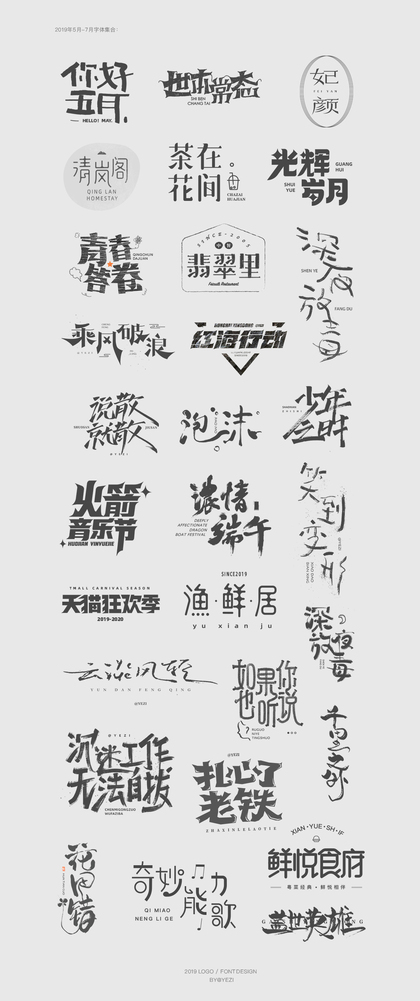 2019年5月-7月字体集合:
你好
五月.
— HELLO! MAY.
世本常态
SHI BEN
CHANG TAI
妃
YEI YAN
颜
清岚阁
QING LAN
HOMESTAY
茶在
花间
CHAZAI
HUAJIAN
光辉
岁月
GUANG
HUI
SHUI
YUE
青春
答卷
QINGCHUN
DAJUAN
SINCE·2005
翡翠里
深夜
放毒
SHEN YE
FANG DU
乘风破浪
红海行动
说散
就散
泡沫
少年
之时
火箭
音乐节
HUOJIAN YINYUEJIE
浓情
端午
DEEPLY
AFFECTIONATE
DRAGON
BOAT FESTIVAL
笑到
变形
TMALL CARNIVAL SEASON
天猫狂欢季
2019-2020
SINCE2019
渔·鲜·居
yu xian ju
深夜
放毒
云淡风轻
YUN DAN FENG QING
@YEZI
如果你
也听说
RUGUO
NIYE
TINGSHUO
@YEZI
沉迷工作
无法自拔
CHENMIGONGZUO
WUFAZIBA
@YEZI
扎心了
老铁
ZHAXINLELAOTIE
花田错
奇妙
能力
歌
QI MIAO
NENG LI GE
XIAN·YUE·SH·IF
鲜悦食府
粤菜经典·鲜悦相伴
盖世英雄
2019 LOGO / FONTDESIGN
BY@YEZI